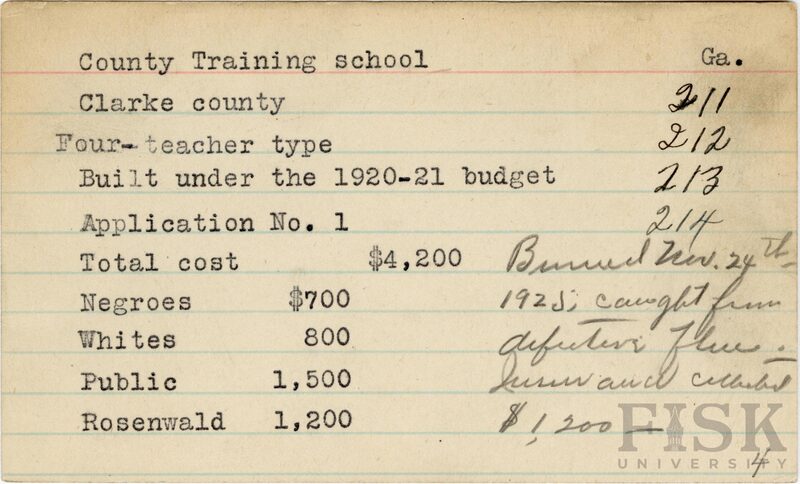 County Training school Ga.
Clarke county 211
Four-teacher type 212
Built under the 1920-21 budget 213
Application No. 1 214
Total cost $4,200 Burned Nov. 24th
Negroes $700 1925; caught from
Whites 800 defective flue.
Public 1,500 Insurance collected
Rosenwald 1,200 $1,200 —
FISK
UNIVERSITY
4